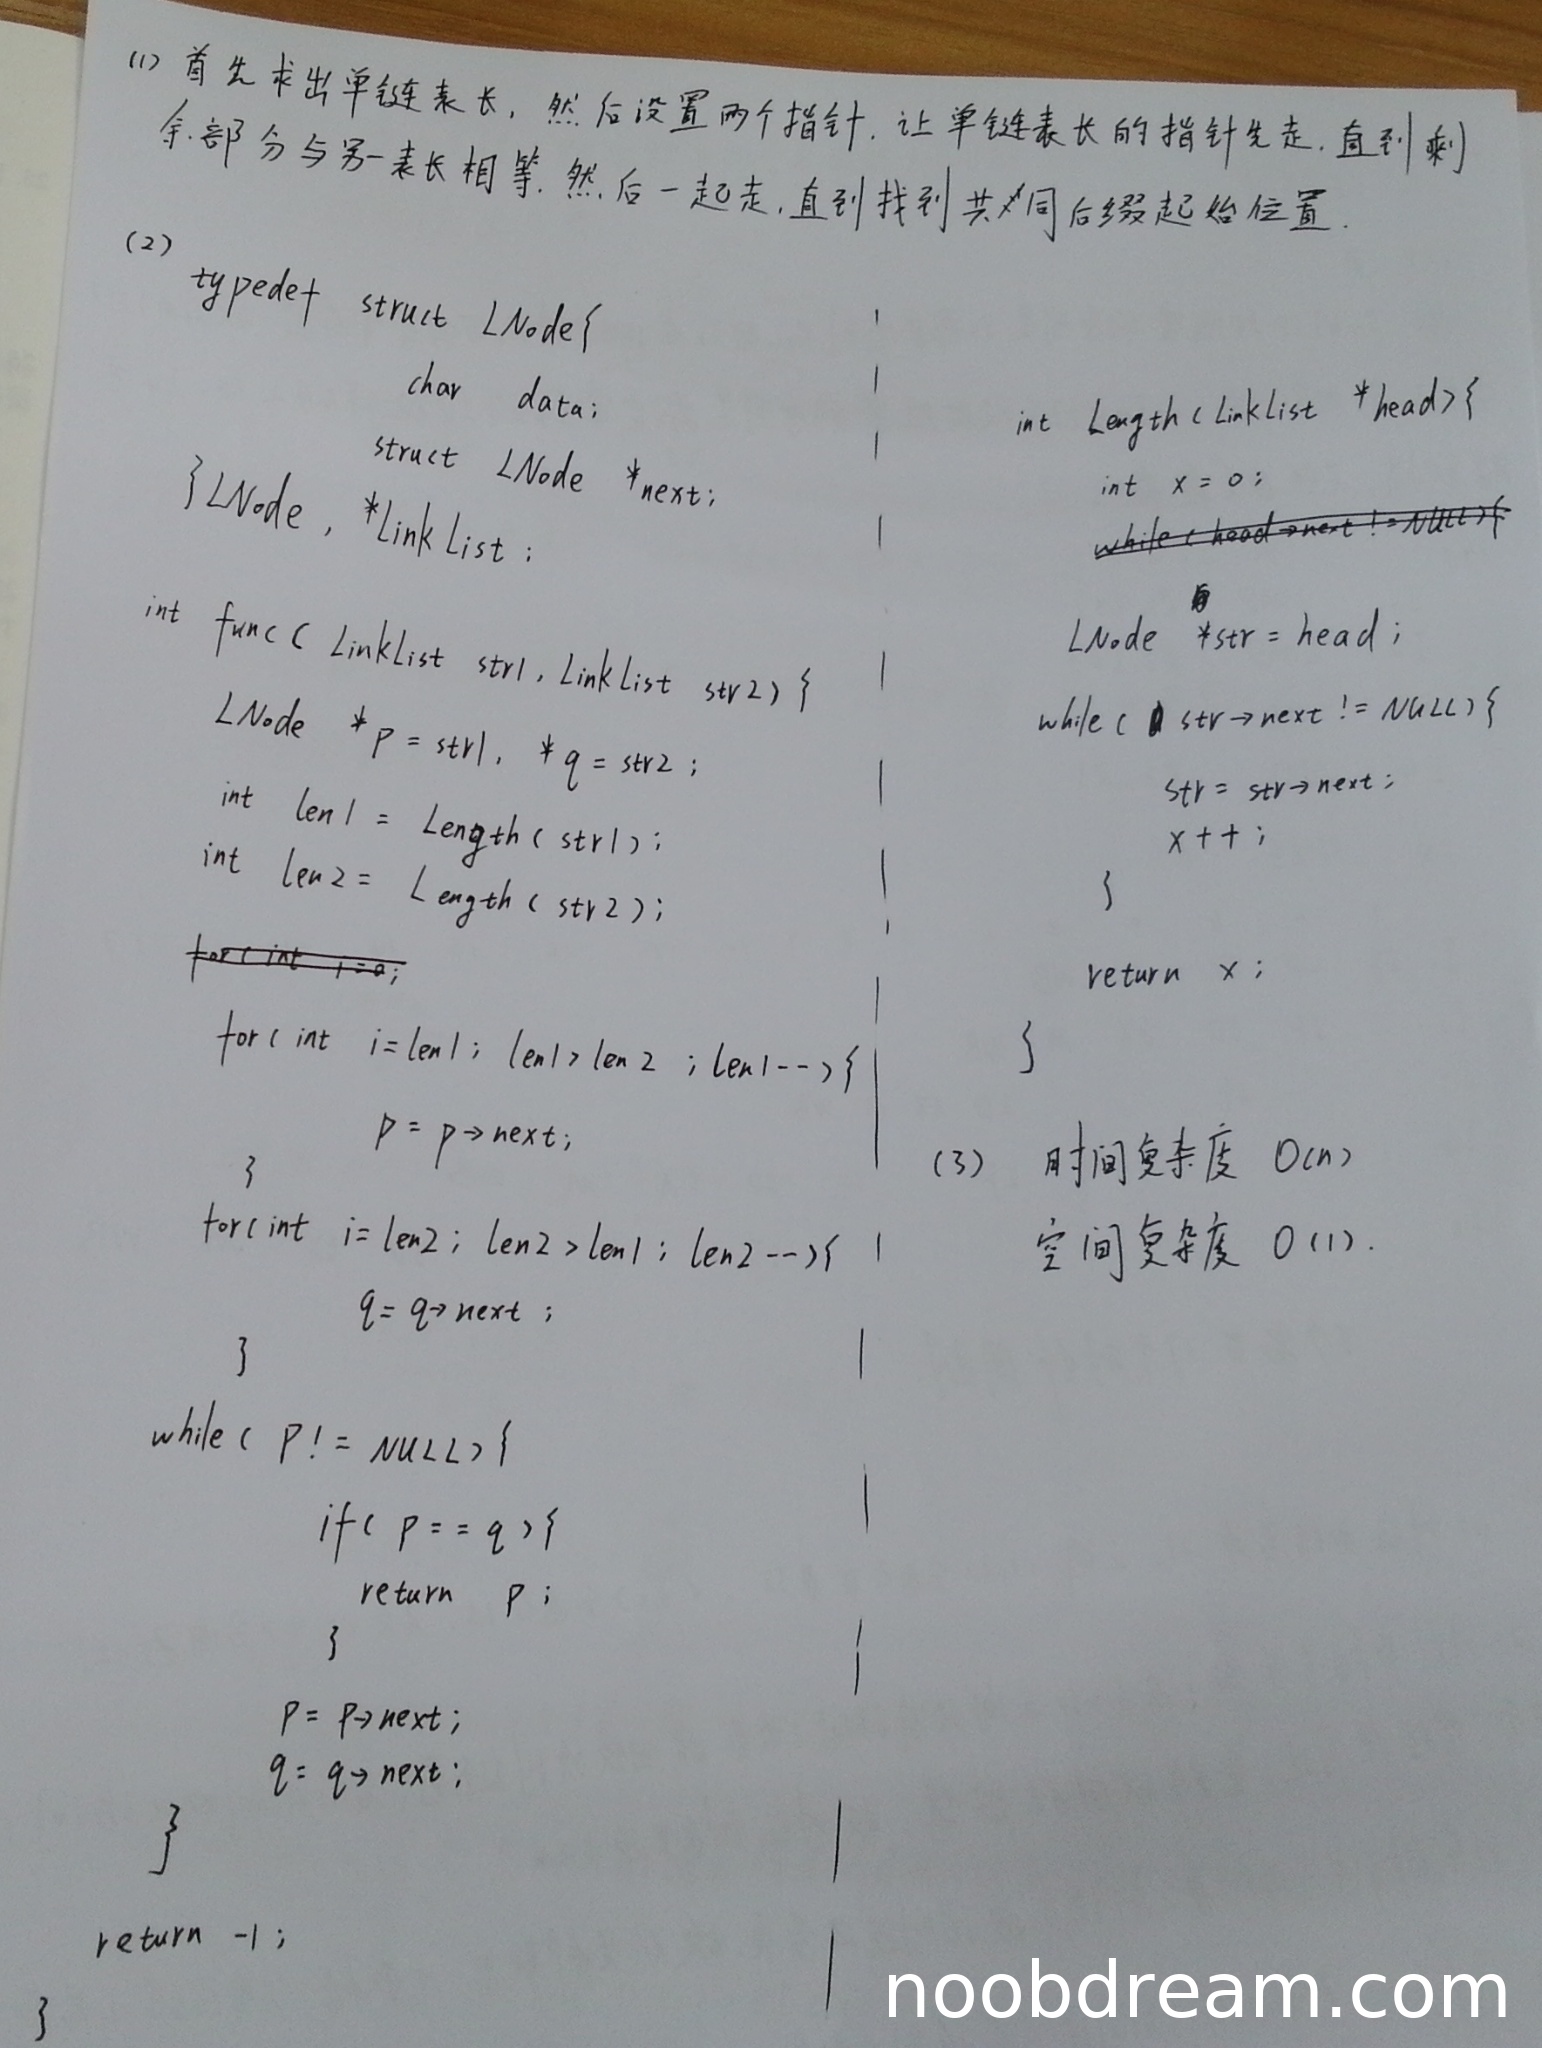 (1) 首先求出单链表长，然后设置两个指针，让单链表长的指针先走，直到剩
余部分与另一表长相等，然后一起走，直到找到共同后缀起始位置.
(2)
typedef struct LNode{
char data;
struct LNode *next;
}LNode, *LinkList;
int func( LinkList str1, LinkList str2){
LNode *p = str1, *q = str2;
int len1 = Length(str1);
int len2 = Length(str2);
for( int i=0;
for( int i=len1; len1>len2 ; len1--){
p = p->next;
}
for(int i=len2; len2>len1; len2--){
q= q->next ;
}
while( p != NULL){
if( p==q){
return p;
}
p= p->next;
q= q->next;
}
return -1;
}
int Length(LinkList *head){
int x=0;
while( head->next != NULL){
LNode *str = head;
while( str->next != NULL){
str= str->next;
x++;
}
return x;
}
(3) 时间复杂度 O(n)
空间复杂度 O(1).
noobdream.com